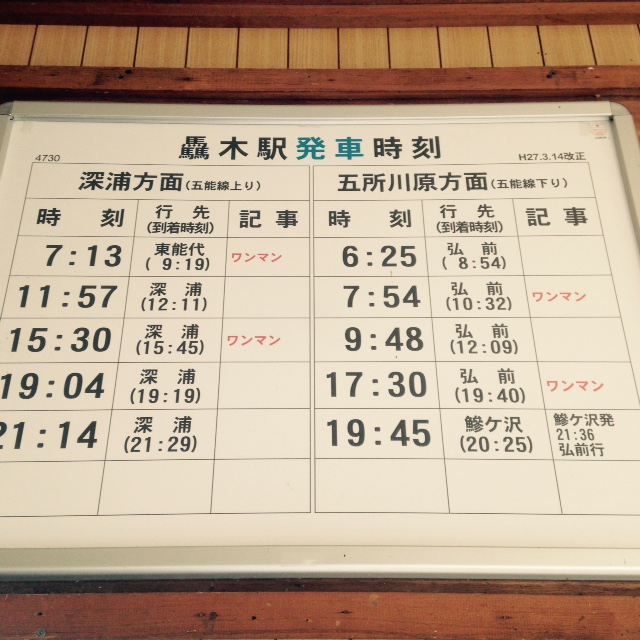 轟木駅発車時刻
4730
H27.3.14改正
深浦方面(五能線上り)
五所川原方面(五能線下り)
時刻 行先 記事
(到着時刻)
時刻 行先 記事
(到着時刻)
7:13 東能代 ワンマン
( 9:19)
6:25 弘前
( 8:54)
11:57 深浦
(12:11)
7:54 弘前 ワンマン
(10:32)
15:30 深浦 ワンマン
(15:45)
9:48 弘前
(12:09)
19:04 深浦
(19:19)
17:30 弘前 ワンマン
(19:40)
21:14 深浦
(21:29)
19:45 鰺ケ沢 鰺ケ沢発
(20:25) 21:36
弘前行